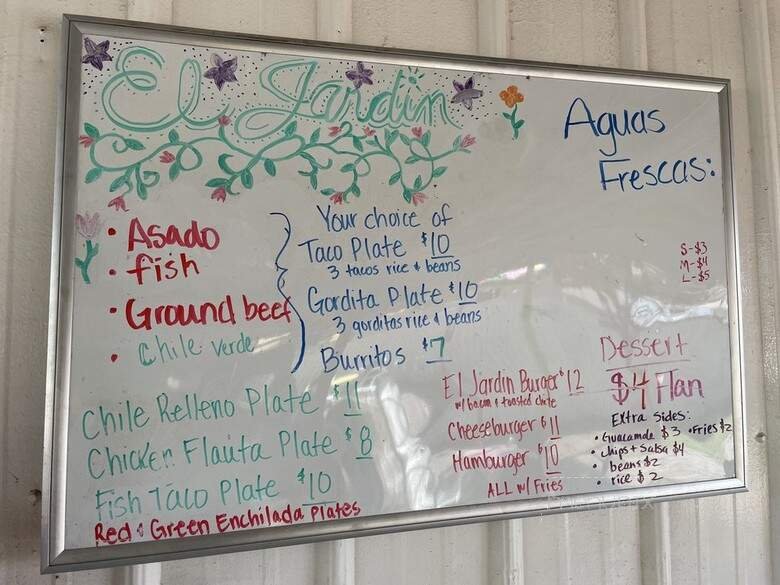 El Jardin
Aguas
Frescas:
S-$3
M-$4
L-$5
• Asado
• fish
• Ground beef
• Chile verde
Your choice of
Taco Plate $10
3 tacos rice & beans
Gordita Plate $10
3 gorditas rice & beans
Burritos $7
Chile Relleno Plate $11
Chicken Flauta Plate $8
Fish Taco Plate $10
Red & Green Enchilada Plates
El Jardin Burger $12
w/ bacon & toasted chile
Cheeseburger $11
Hamburger $10
ALL w/ Fries
Dessert
$4 Flan
Extra Sides:
• Guacamole $3 • Fries $2
• chips + Salsa $4
• beans $2
• rice $2